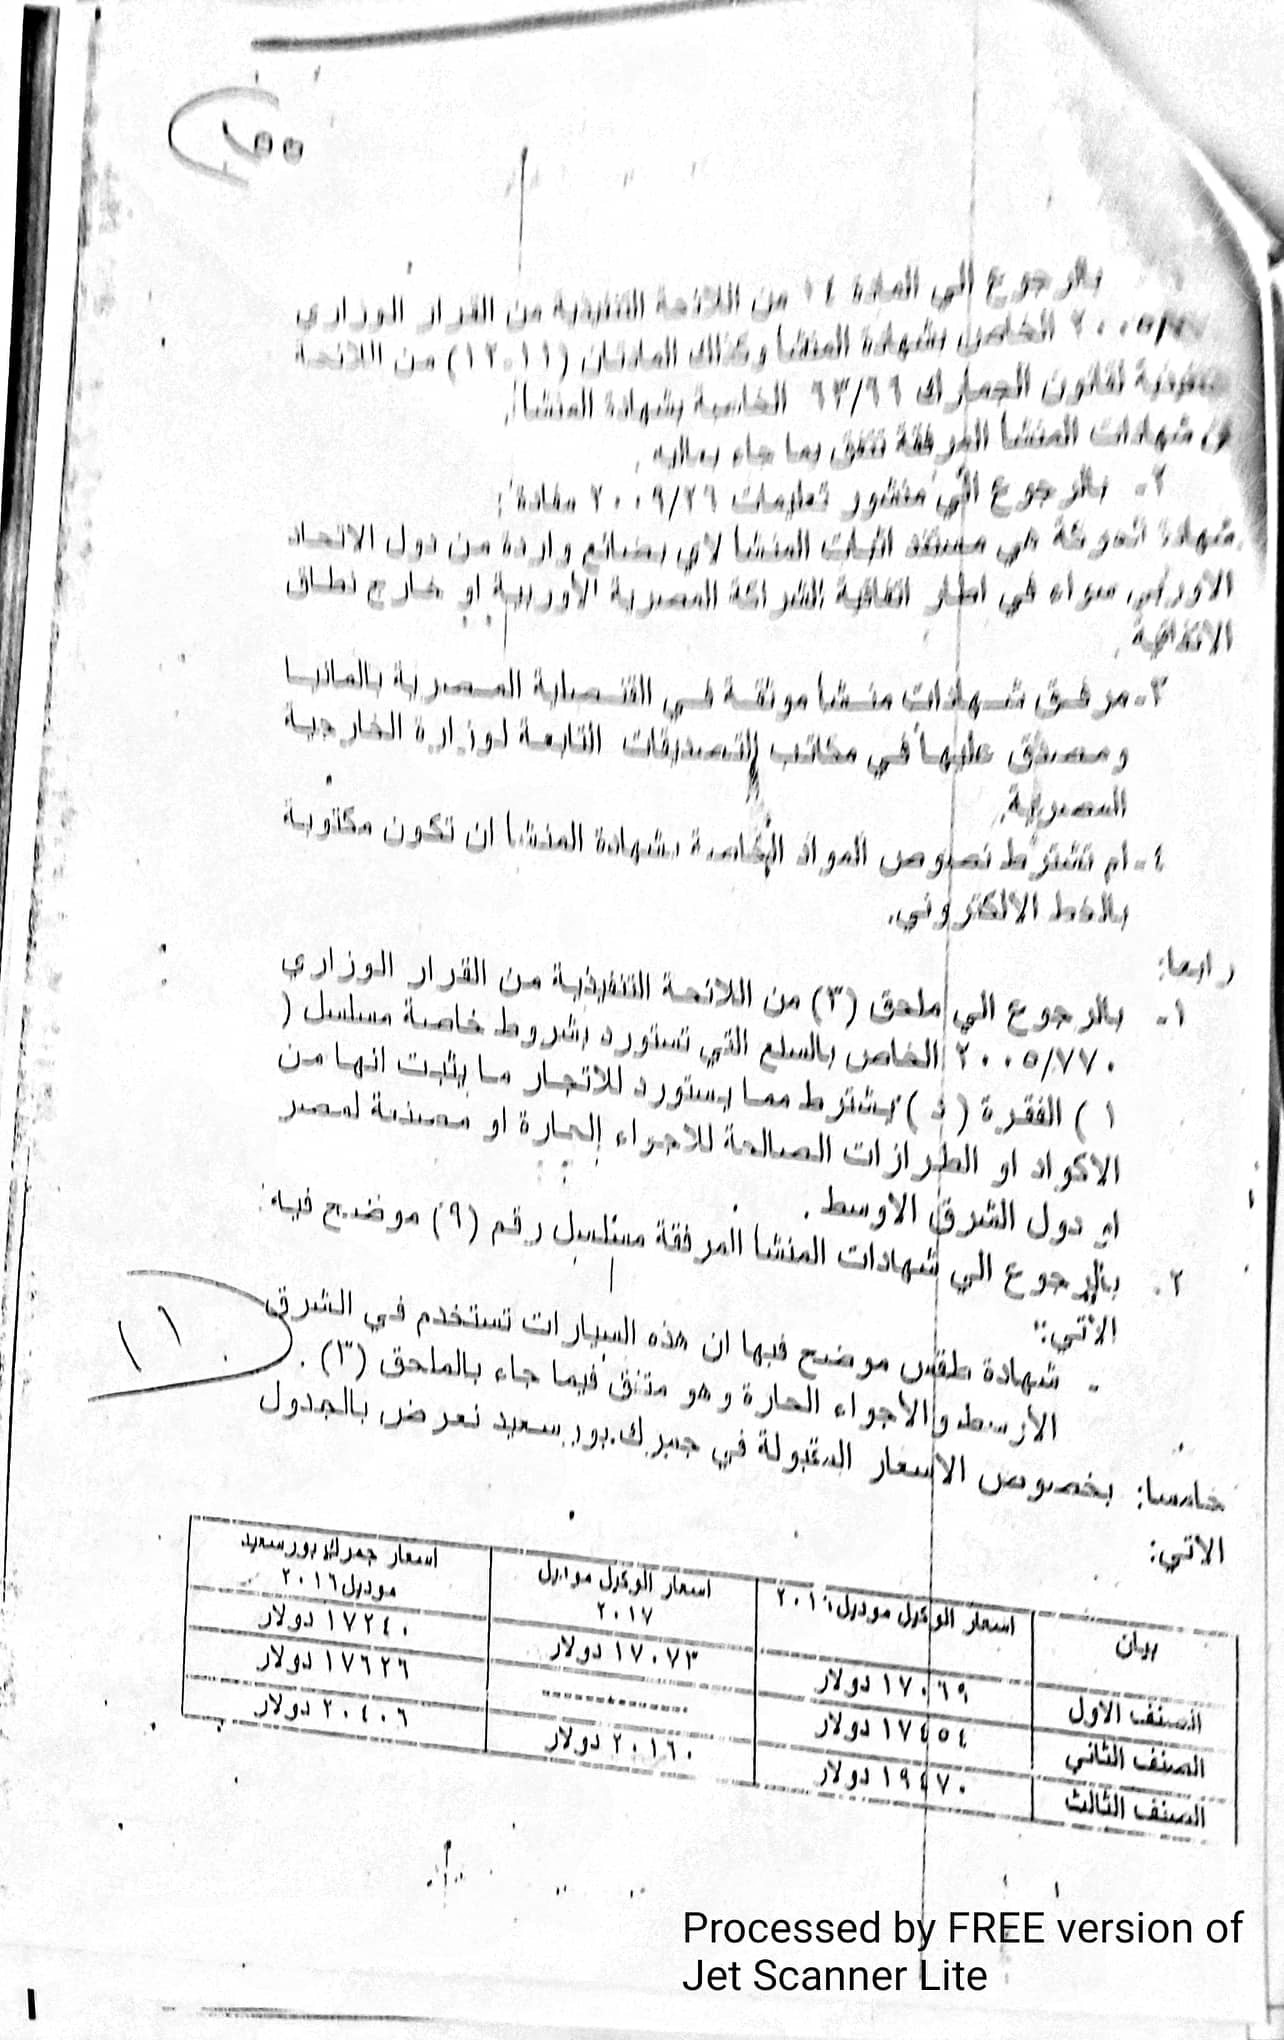 بالرجوع الي المادة من اللائحة التنفيذية من القرار الوزاري
الخاص بشهادة المنشا وكذلك المادتان (١٢،١١) من اللائحة
لقانون الجمارك ٦٣/٦٦ الخاصة بشهادة المنشا
شهادات المنشا المرفقة تتفق بما جاء بعاليه .
٢- بالرجوع الي منشور تعليمات ٢٠٠٩/٢٦ مفادة :
شهادة الحركة هي مستند اثبات المنشا لاي بضائع واردة من دول الاتحاد
الاوربي سواء في اطار اتفاقية الشراكة المصرية الأوربية او خارج نطاق
الاتفاقية .
٣- مرفق شهادات منشا موثقة في القنصلية المصرية بالمانيا
ومصدق عليها في مكاتب التصديقات التابعة لوزارة الخارجية
المصرية.
٤- لم تشترط نصوص المواد الخاصة بشهادة المنشا ان تكون مكتوبة
بالخط الالكتروني.
رابعا:
١- بالرجوع الي ملحق (٣) من اللائحة التنفيذية من القرار الوزاري
٢٠٠٥/٧٧٠ الخاص بالسلع التي تستورد بشروط خاصة مسلسل (
١ ) الفقرة ( د ) يشترط مما يستورد للاتجار ما يثبت انها من
الاكواد او الطرازات الصالحة للاجواء الحارة او مصنعة لمصر
او دول الشرق الاوسط .
٢. بالرجوع الي شهادات المنشا المرفقة مسلسل رقم (٩) موضح فيه
الأتي:
- شهادة طقس موضح فيها ان هذه السيارات تستخدم في الشرق
الأوسط والأجواء الحارة وهو متفق فيما جاء بالملحق (٣) .
١١
خامسا: بخصوص الاسعار المقبولة في جمرك بورسعيد نعرض بالجدول
الاتي:
بيان اسعار الوكيل موديل ٢٠١٦ اسعار الوكيل موديل ٢٠١٧ اسعار جمرك بورسعيد موديل ٢٠١٦
الصنف الاول ١٧٠٦٩ دولار ١٧٠٧٣ دولار ١٧٢٤٠ دولار
الصنف الثاني ١٧٤٥٤ دولار -------------- ١٧٦٢٦ دولار
الصنف الثالث ١٩٤٧٠ دولار ٢٠١٦٠ دولار ٢٠٤٠٦ دولار
Processed by FREE version of
Jet Scanner Lite